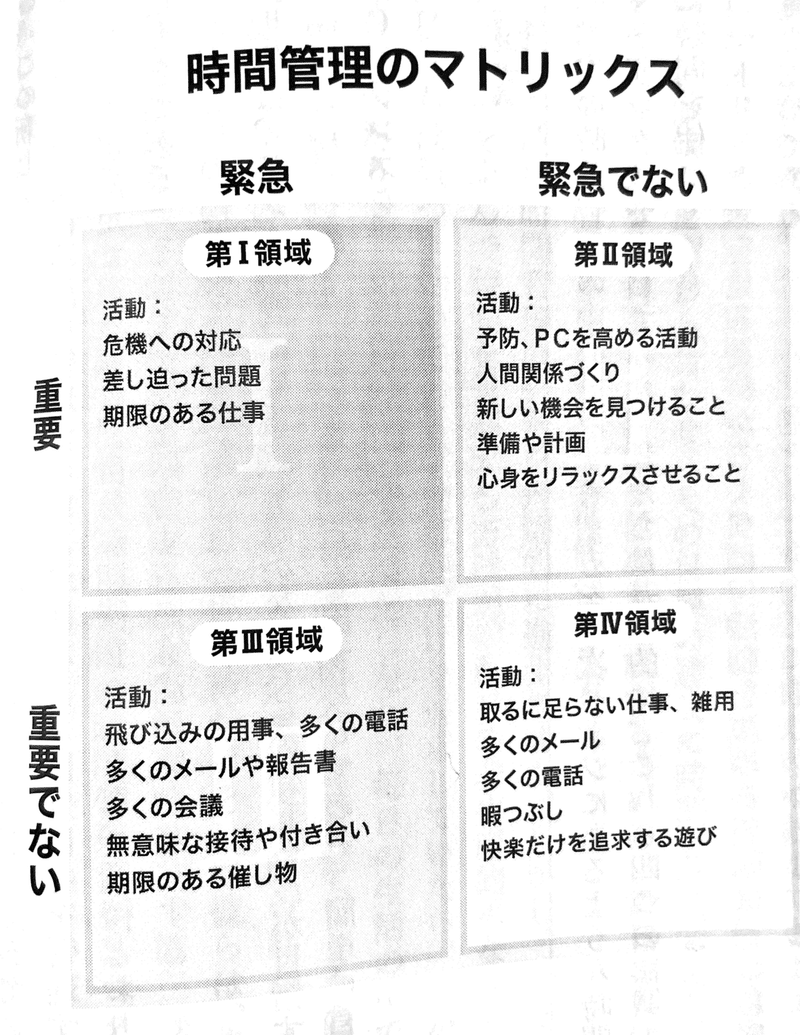 時間管理のマトリックス
緊急
緊急でない
重要
第Ⅰ領域
活動：
危機への対応
差し迫った問題
期限のある仕事
第Ⅱ領域
活動：
予防、PCを高める活動
人間関係づくり
新しい機会を見つけること
準備や計画
心身をリラックスさせること
重要でない
第Ⅲ領域
活動：
飛び込みの用事、多くの電話
多くのメールや報告書
多くの会議
無意味な接待や付き合い
期限のある催し物
第Ⅳ領域
活動：
取るに足らない仕事、雑用
多くのメール
多くの電話
暇つぶし
快楽だけを追求する遊び